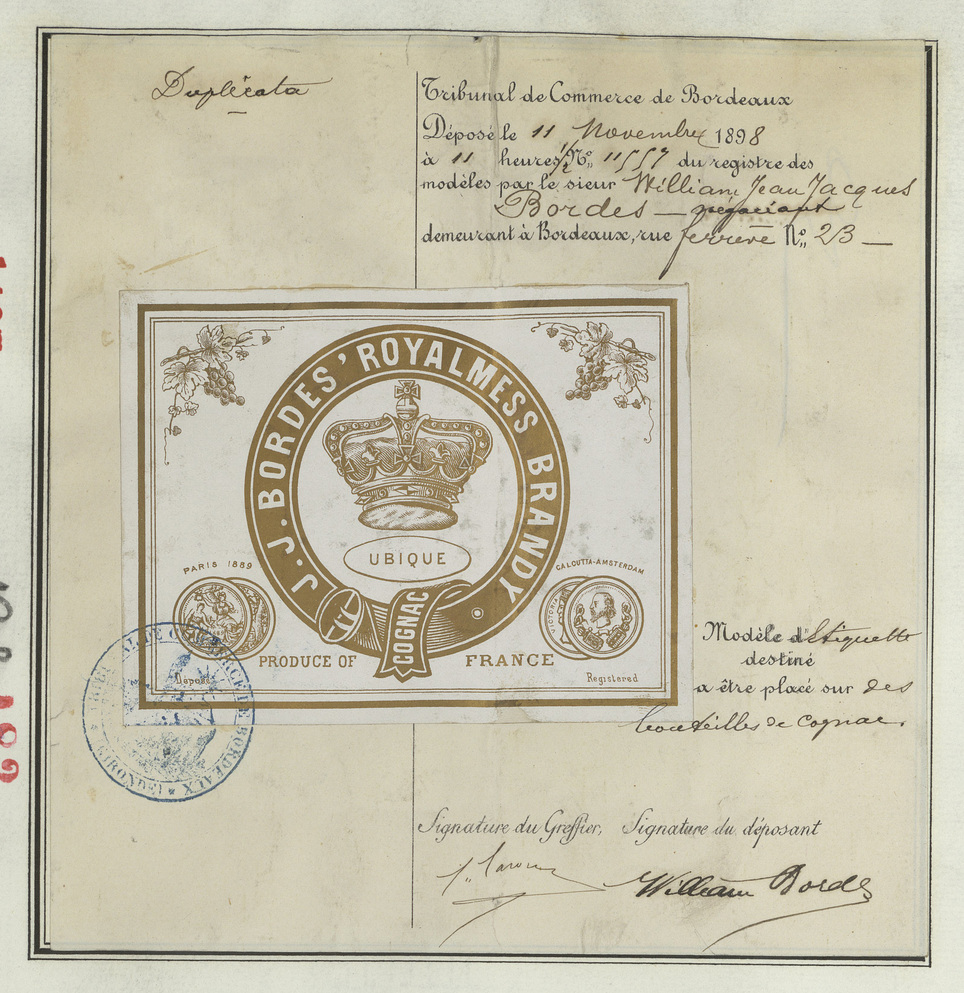 Duplicata
Tribunal de Commerce de Bordeaux
Déposé le 11 Novembre 1898
à 11 heures 1/2 No 11557 du registre des
modèles par le sieur William Jean Jacques
Bordes — négociant
demeurant à Bordeaux, rue ferrère No 23 —
J.J. BORDES' ROYALMESS BRANDY
UBIQUE
COGNAC
PARIS 1889
CALCUTTA-AMSTERDAM
VICTORIA
PRODUCE OF FRANCE
Déposé
Registered
TRIBUNAL DE COMMERCE DE BORDEAUX
(GIRONDE)
Modèle d'étiquette
destiné
a être placé sur des
bouteilles de cognac.
Signature du Greffier, Signature du déposant
William Bordes